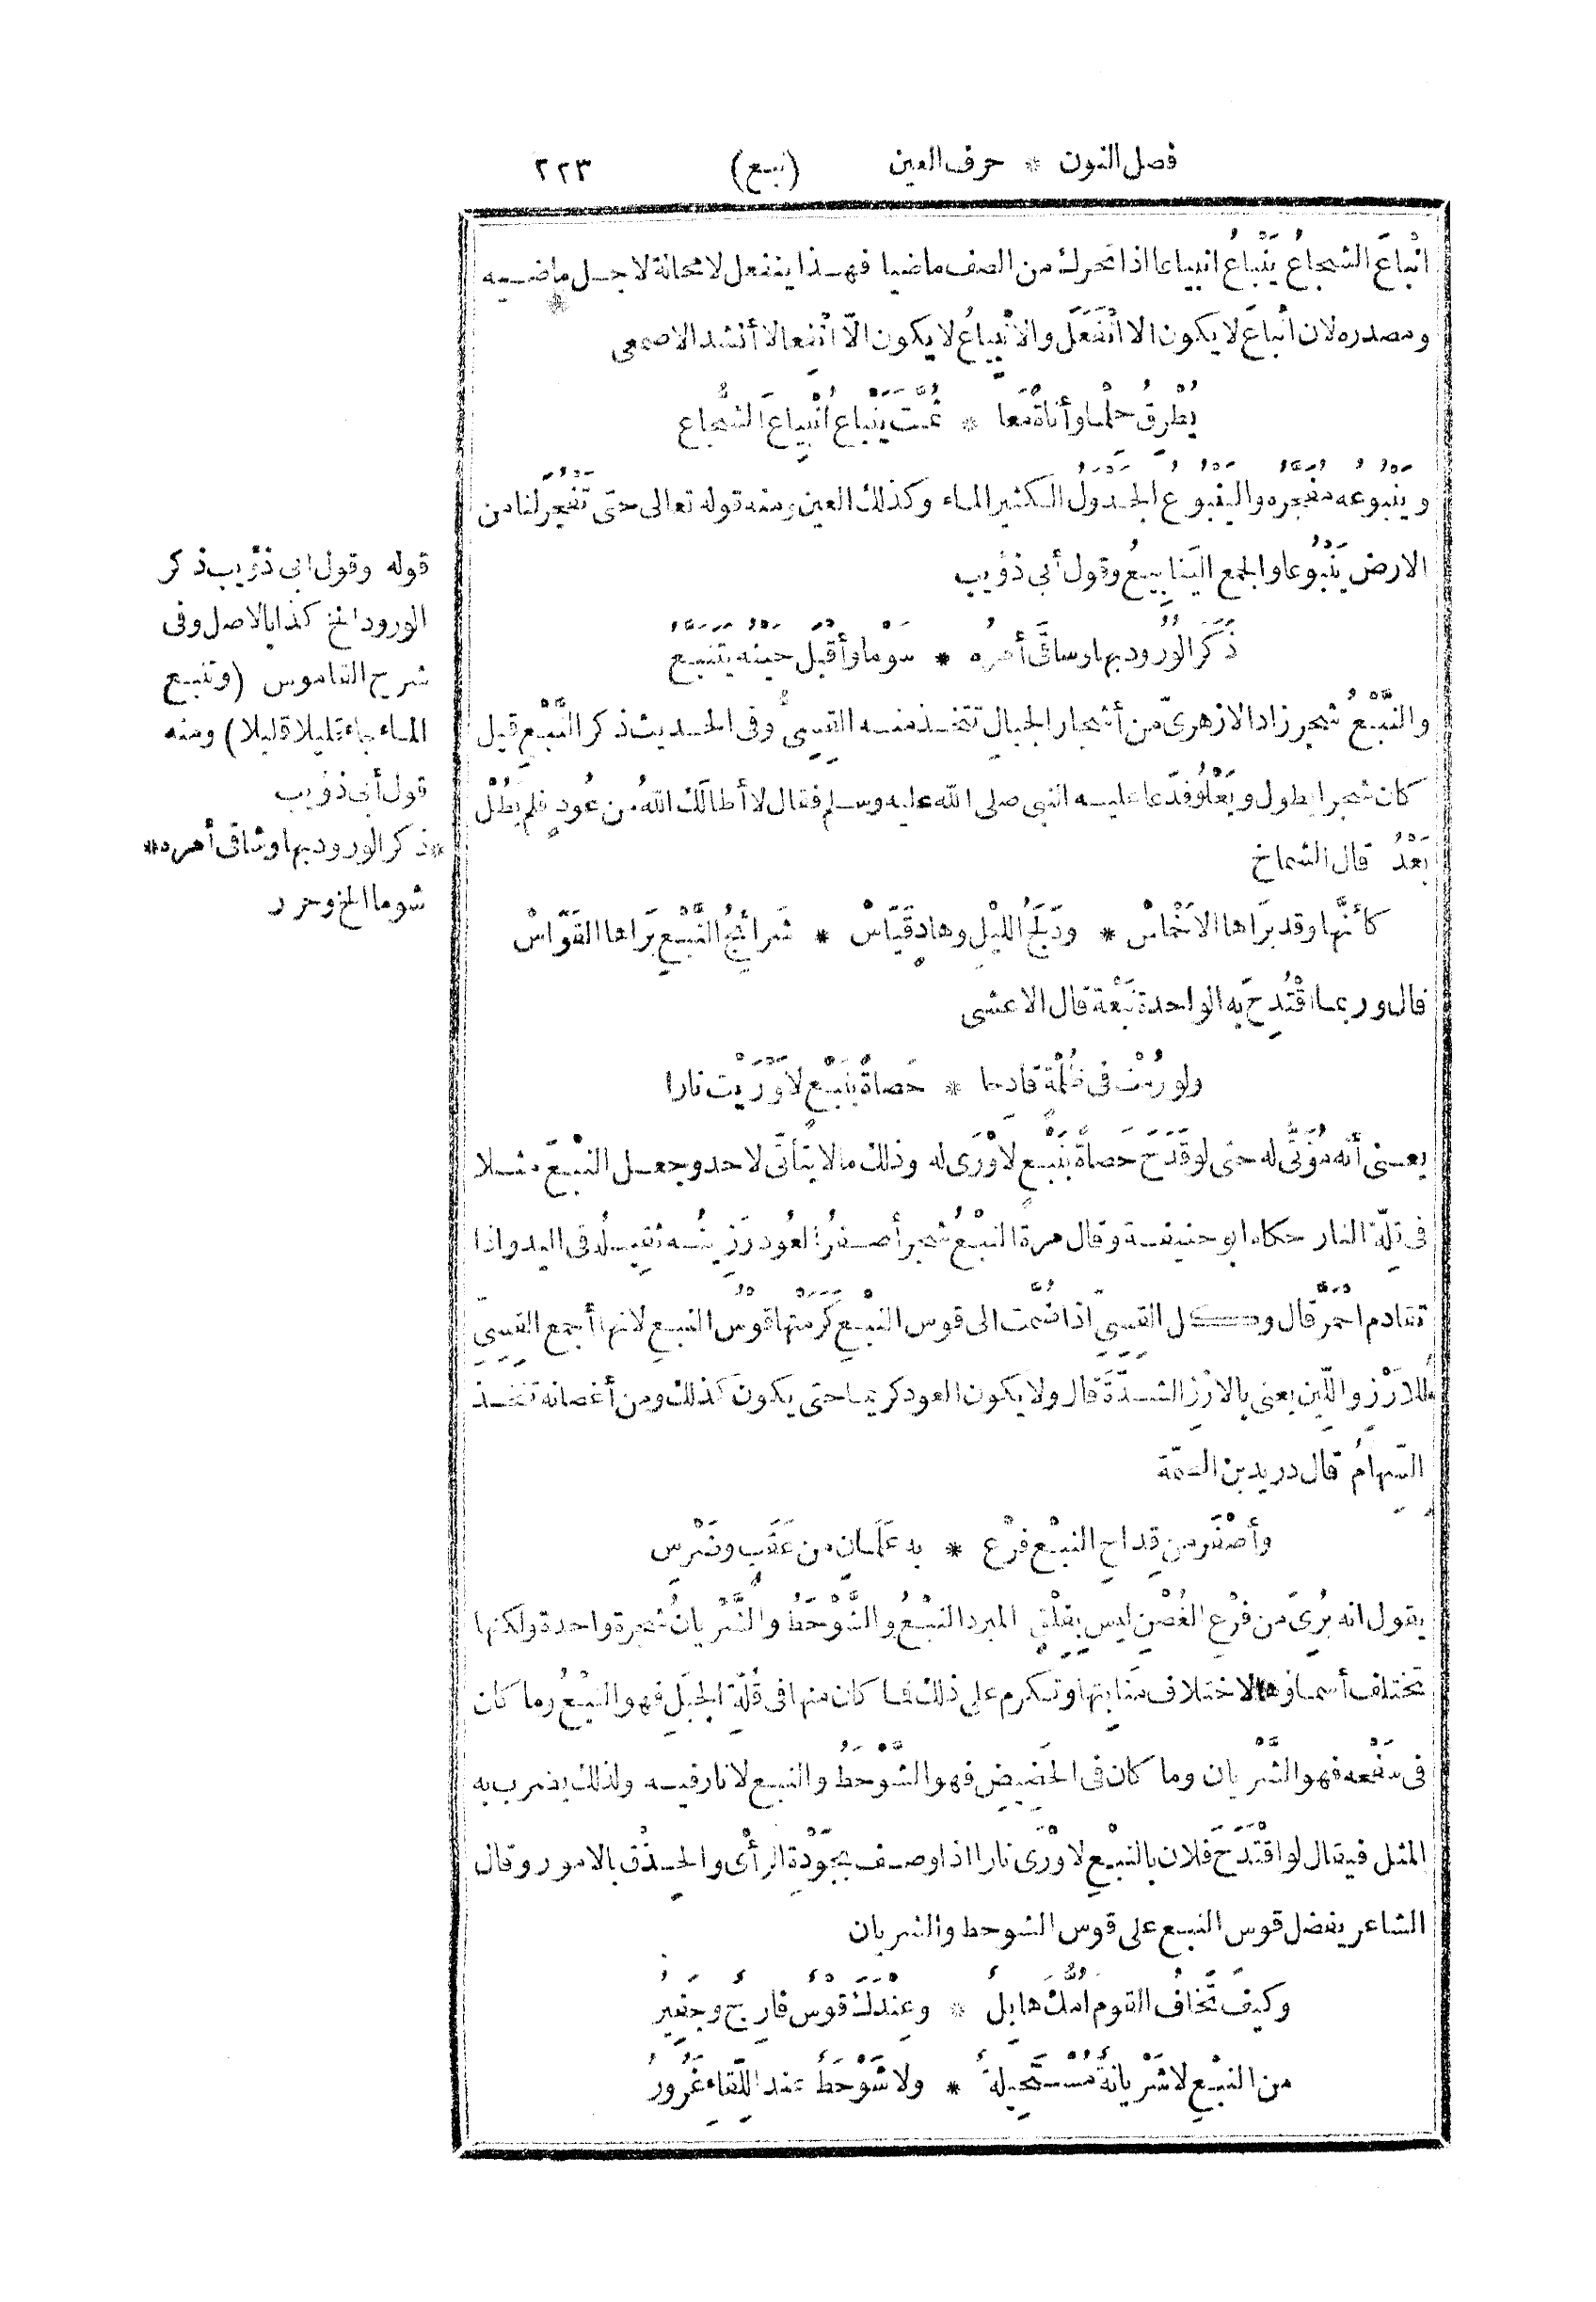 فصل النون * حرف العين (نبع) ٢٢٣
انْباعَ الشجاعُ يَنْباعُ انبياعا اذا تحرك من الصف ماضيا فهذا ينفعل لا محالة لاجل ماضيه
ومصدره لان انْباعَ لا يكون الا انْفَعَلَ والانْبِياعُ لا يكون الّا انْفِعالا أنشد الاصمعى
يُطْرِقُ حِلْما وأَناةً مَعًا * ثُمَّتَ يَنْباعُ انْبِياعَ الشُّجاع
ويَنْبوعُه مُفَجَّرُه واليَنْبوعُ الجَدْوَلُ الكثير الماء وكذلك العين ومنه قوله تعالى حتى تَفْجُرَ لنا من
الارض يَنْبُوعا والجمع اليَنابِيعُ وقول أبى ذؤيب
ذَكَرَ الوُرُودَ بها وساقَى أمرُه * سَوْما وأَقْبَلَ حينه يَتَنَبَّعُ
والنَّبْعُ شجر زاد الازهرىّ من أشجار الجبالِ تتخذ منه القِسِىُّ وفى الحديث ذكر النَّبْعِ قيل
كان شجرا يطول ويَعْلُو فدَعا عليه النبى صلى الله عليه وسلم فقال لا أطالَكَ اللهُ من عُودٍ فلم يَطُلْ
بَعْدُ قال الشماخ
كأَنَّها وقد بَرَاها الاَخْماسْ * ودَلَجُ اللَيْلِ وهادٍ قَيّاسْ * شَرائِجُ النَّبْعِ بَرَاها القَوّاسْ
قال وربما اقْتُدِحَ به الواحدة نَبْعة قال الاعشى
ولو رُمْتَ فى ظُلْمةٍ قادحا * حَصاةً بِنَبْعٍ لاَوْرَيْتَ نارا
يعنى أنه مُؤَتًّى له حتى لو قَدَحَ حَصاةً بِنَبْعٍ لاَوْرَى له وذلك ما لا يَتأتَّى لاحد وجعل النبْعَ مثلا
فى قِلّة النار حكاه ابو حنيفة وقال مرة النبْعُ شجر أصفرُ العُود رَزِينُه ثقيلُه فى اليد واذا
تقادم احْمَرَّ قال وكل القِسِىِّ اذا ضُمَّت الى قوس النبْعِ كَرَمَتْها قوْسُ النبع لانها أجمع القِسِىِّ
للاَرْزِ واللِّين يعنى بالاَرْزِ الشدّةَ قال ولا يكون العود كريما حتى يكون كذلك ومن أغصانه تتخذ
السِّهامُ قال دريد بن الصمّة
وأصْفَر من قِداحِ النبْعِ فرْعٍ * به عَلَمانِ من عَقَبٍ وضَرْسِ
يقول انه بُرِىَ من فرْعِ الغُصْنِ ليس بِفِلْقٍ المبرد النبْعُ والشَّوْحَطُ والشَّرْيانُ شجرة واحدة ولكنها
تختلف أسماؤها لاختلاف مَنابِتِها وتكرم على ذلك فما كان منها فى قُلّةِ الجبَلِ فهو النبْعُ وما كان
فى سَفْحه فهو الشَّرْيان وما كان فى الحَضِيضِ فهو الشَّوْحَطُ والنبع لا نار فيه ولذلك يضرب به
المثل فيقال لو اقْتَدَحَ فلان بالنبْعِ لاَوْرَى نارا اذا وصف بجَوْدةِ الرأْى والحِذْقِ بالامور وقال
الشاعر يفضل قوس النبع على قوس الشوحط والشريان
وكيفَ تَخافُ القومَ امُّكَ هابِلٌ * وعِنْدَكَ قَوْسٌ فارِجٌ وجَفِيرُ
من النبْعِ لا شَرْيانةٌ مُسْتَحِيلةٌ * ولا شَوْحَطٌ عند اللِّقاءِ غَرُورُ
قوله وقول ابى ذؤيب ذكر
الورود الخ كذا بالاصل وفى
شرح القاموس (وتنبع
الماء جاء قليلا قليلا) ومنه
قول أبى ذؤيب
*ذكر الورود بها وشاقى أمره*
شوما الخ وحرر